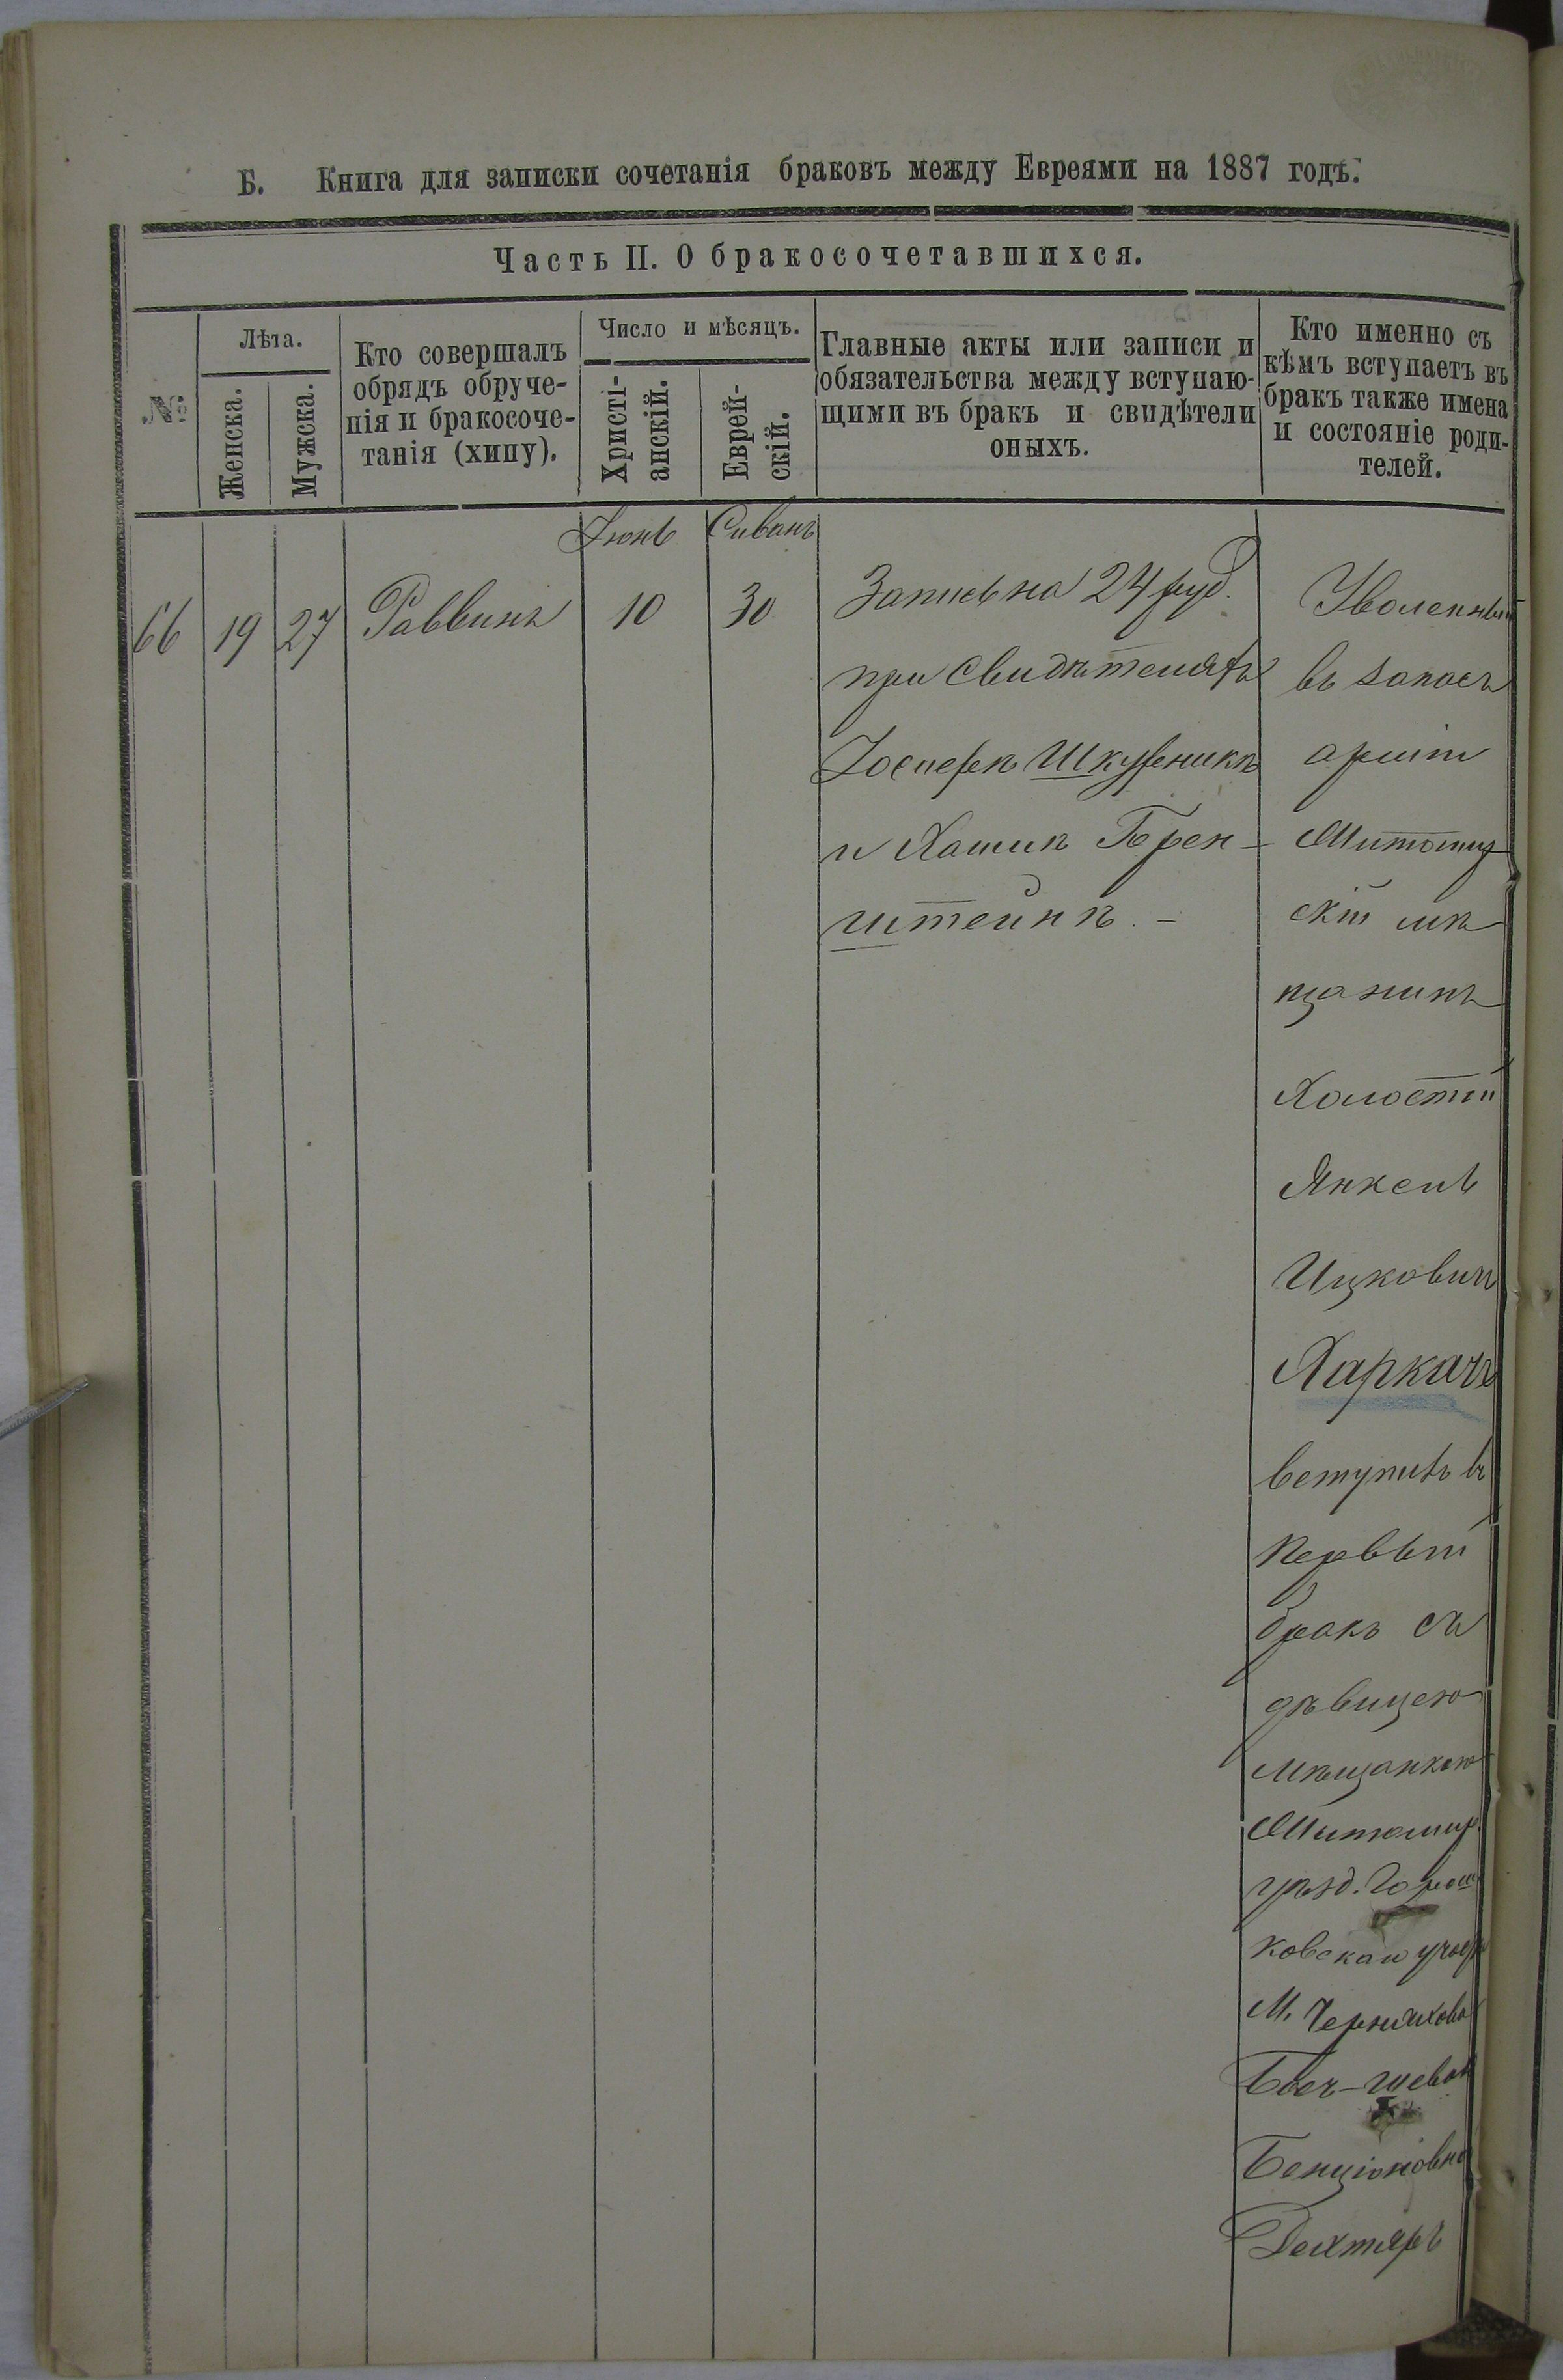 Б. Книга для записки сочетанія браковъ между Евреями на 1887 годъ.
Часть II. О бракосочетавшихся.
№
Лѣта.
Женска.
Мужска.
Кто совершалъ
обрядъ обруче-
нія и бракосоче-
танія (хипу).
Число и мѣсяцъ.
Христі-
анскій.
Еврей-
скій.
Главные акты или записи и
обязательства между вступаю-
щими въ бракъ и свидѣтели
оныхъ.
Кто именно съ
кѣмъ вступаетъ въ
бракъ также имена
и состояніе роди-
телей.
Іюнь Сиванъ
66 19 27 Раввинъ 10 30
Запись на 24 руб.
при свидѣтеляхъ
Іосифѣ Шкурникѣ
и Хаимѣ Брен-
штейнѣ. -
Уволенный
въ запасъ
арміи
Житомир
скій мѣ
щанинъ
Холостой
Янкель
Ицковичъ
Харкачъ
вступилъ въ
первый
бракъ съ
дѣвицею
мѣщанкою
Житомир.
уѣзд. Горош
ковская
М. Черняхова
Бася-шева
Бенціоновна
Дехтяръ